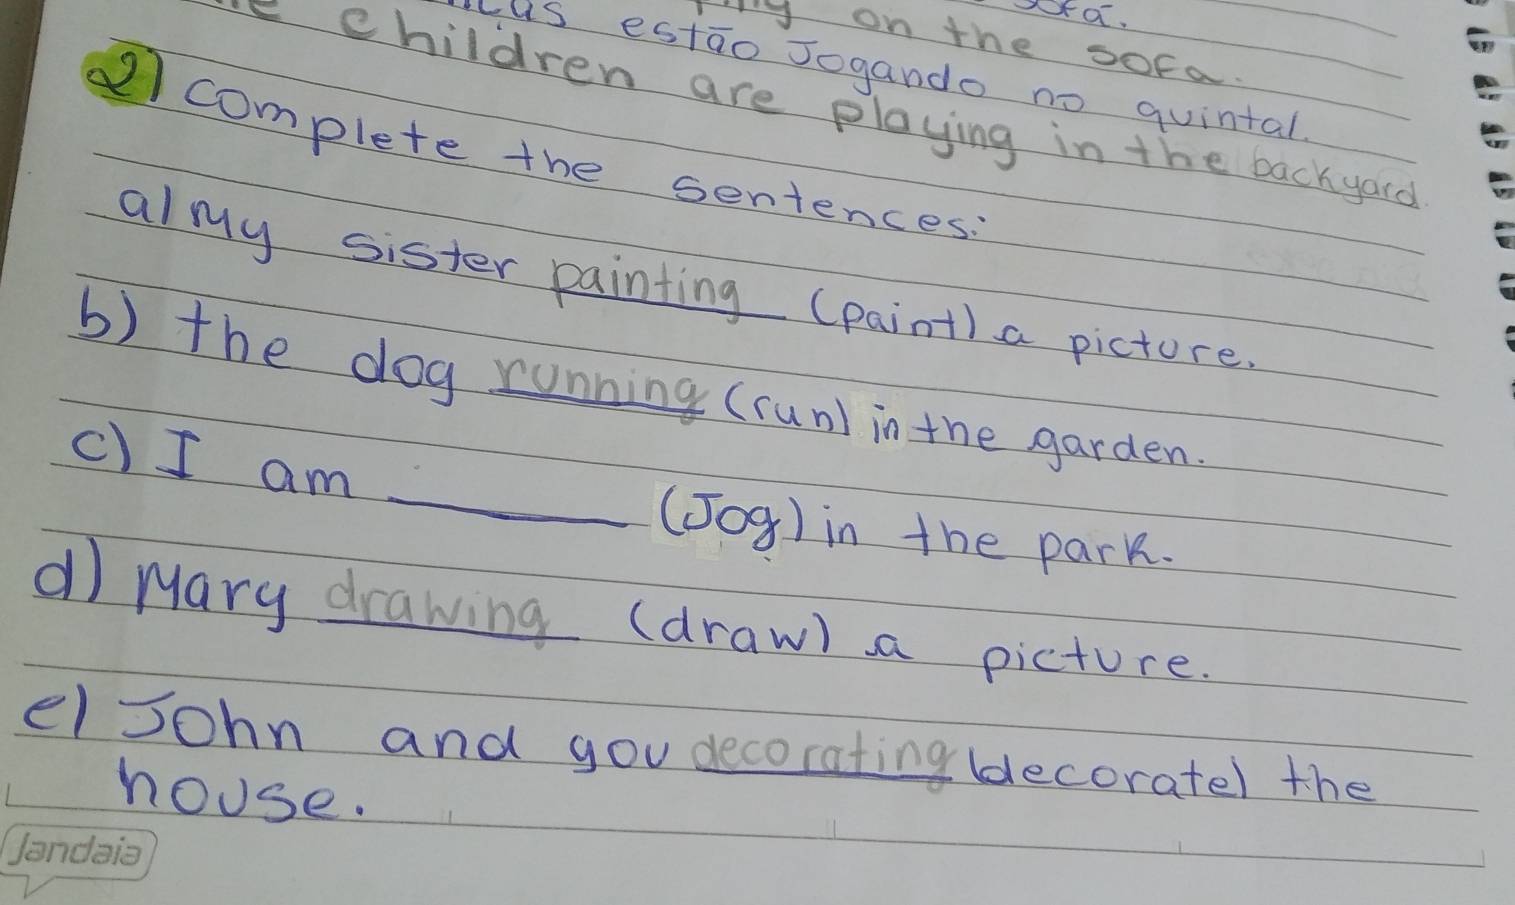 sofá.
on the sofa.
estão Jogando no quintal.
children are playing in the backyard.
2) complete the sentences:
a) My sister painting (paint) a picture.
b) the dog running (run) in the garden.
c) I am ______ (Jog) in the park.
d) Mary drawing (draw) a picture.
e) John and you decorating (decorate) the
house.
Jandaia